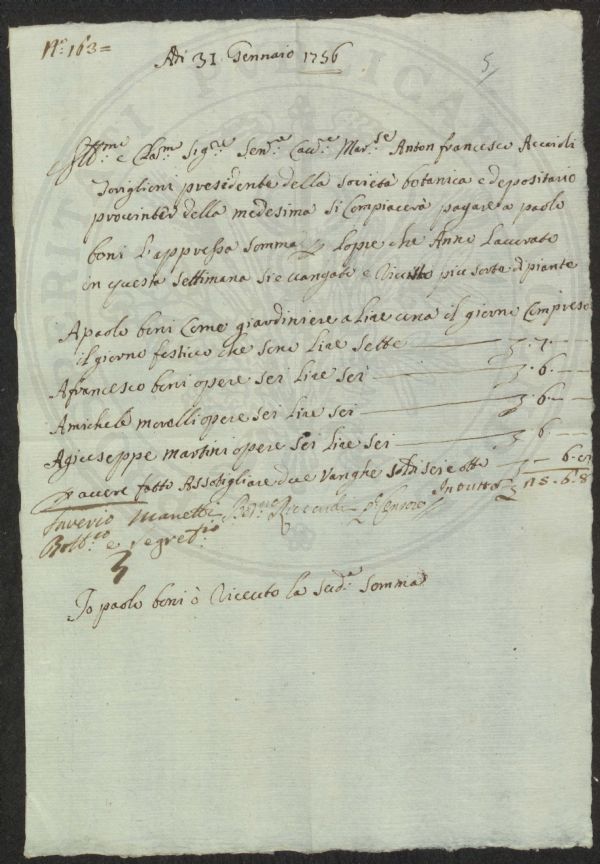 N.o 163=
Adi 31 Gennaio 1756
5/
Ill.mo e Cla.mo Sig.re Sen.re Cav.re Mar.se Anton francesco Acciaioli
Toriglioni presidente della società botanica e depositario
della medesima si Compiacerà pagare a paolo
boni l'appressa somma p lopre che Anno Lavorato
in questa settimana si è vangato e piu sorte di piante
A paolo boni Come giardiniere a Lire una il giorno Compreso
il giorno festivo che sono Lire sette — £ . 7 . —
A francesco boni opere sei Lire sei — £ . 6 . —
A michele morelli opere sei Lire sei — £ . 6 —
A giuseppe martini opere sei Lire sei — £ 6 . —
p avere fatto Assotigliare due Vanghe soldi sei e otto — 6 . 8
In tutto £ 25 . 6 . 8
Saverio Manetti
Bott.co e segret.rio
Io paolo boni ò riceuto la sud.a somma